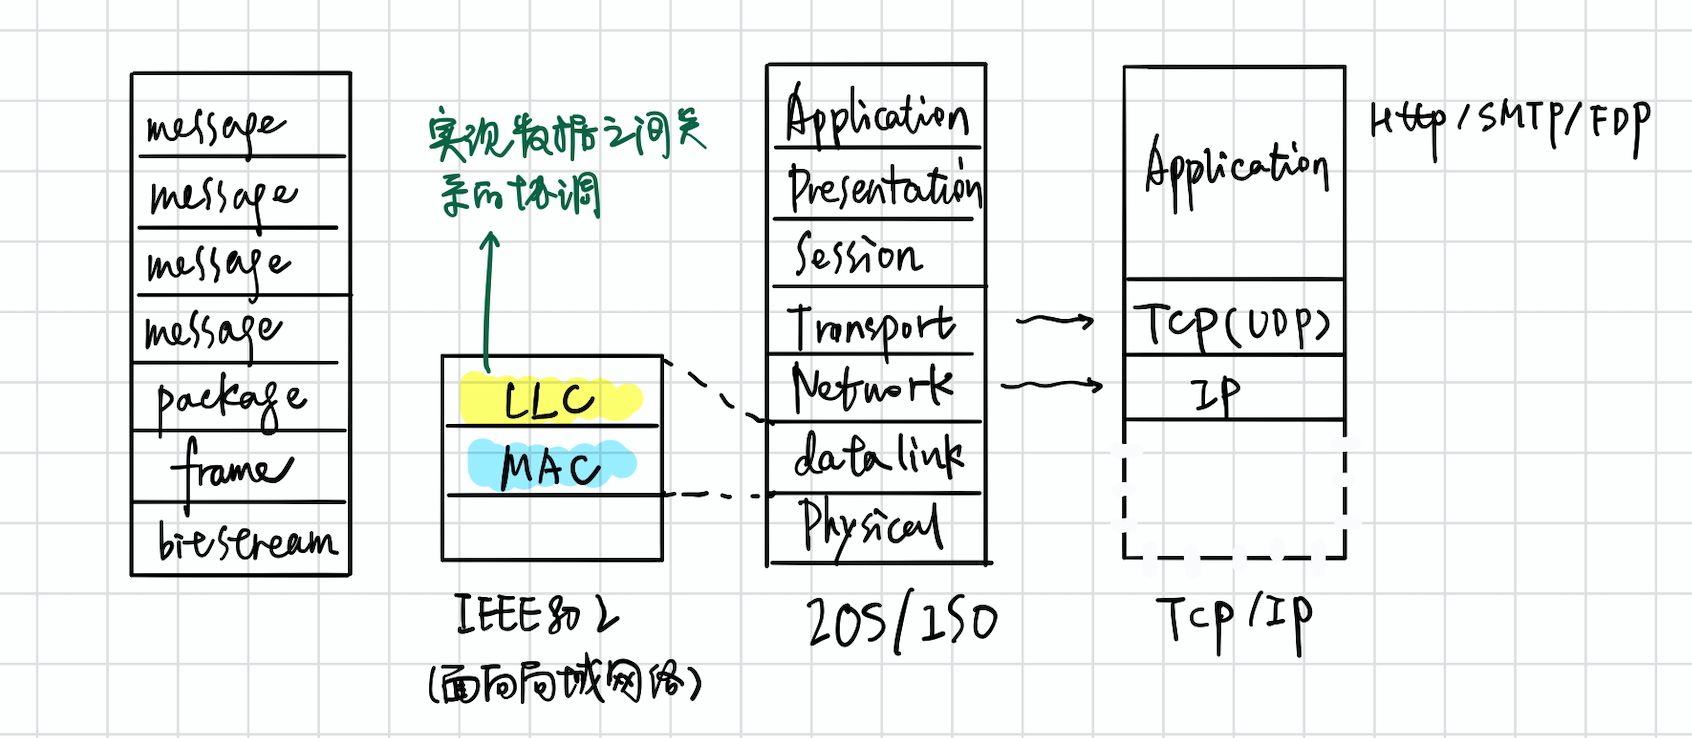 message
message
message
message
package
frame
bitstream
实现数据之间关
系的协调
LLC
MAC
IEEE802
(面向局域网络)
Application
Presentation
Session
Transport
Network
data link
Physical
IOS/ISO
Application
TCP(UDP)
IP
Tcp/Ip
Http/SMTP/FDP